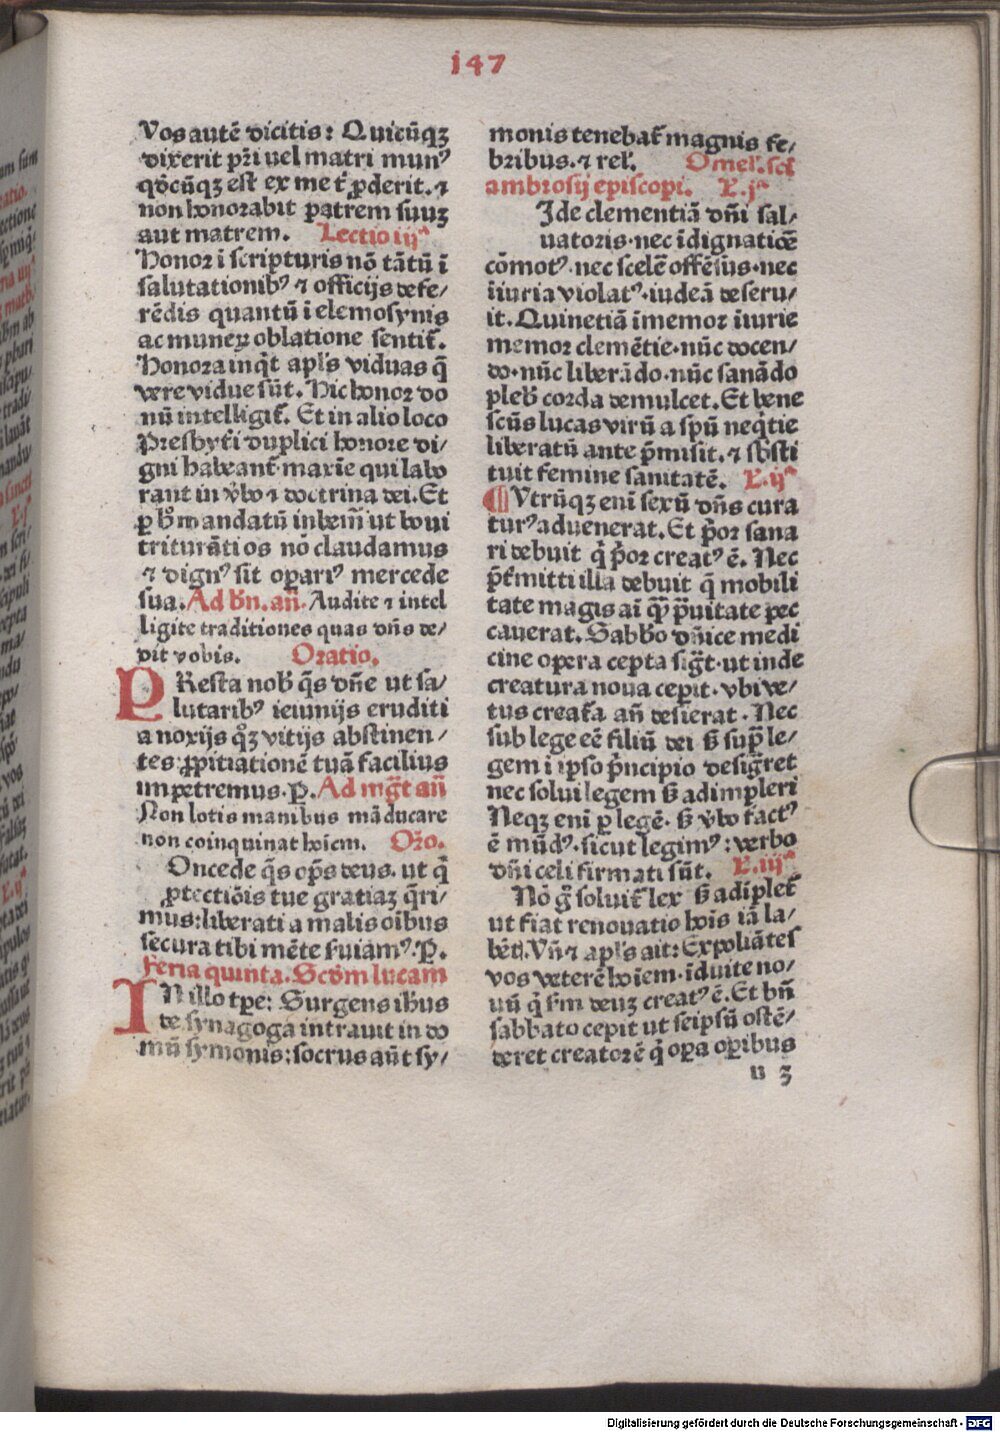 147
Vos autē dicitis: Quicūqꝫ
dixerit pr̄i uel matri munꝰ
qd̄cūqꝫ est ex me t̄ ꝓderit. ⁊
non honorabit patrem suuꝫ
aut matrem. Lectio iijᵃ
Honor ī scripturis nō tātū ī
salutationibꝰ ⁊ officijs defe⸗
rēdis quantū ī elemosynis
ac muneꝝ oblatione sentit̄.
Honora inqͥt apl's viduas q̄
vere vidue sūt. Hic honor do
nū intelligit̄. Et in alio loco
Presbyt̄i duplici honore di⸗
gni habeant̄ maxīe qui labo
rant in v̄bo ⁊ doctrina dei. Et
ꝑ h̄ mandatū inbem̄ ut boui
triturāti os nō claudamus
⁊ dignꝰ sit oꝑariꝰ mercede
sua. Ad bn̄. an̄. Audite ⁊ intel
ligite traditiones quas dn̄s de⸗
dit vobis. Oratio.
PResta nob' q̄s dn̄e ut sa⸗
lutaribꝰ ieiunijs eruditi
a noxijs qͦꝫ vitijs abstinen⸗
tes: ꝓpitiationē tuā facilius
impetremus. P. Ad mḡt an̄
Non lotis manibus māducare
non coinquinat hoīem. Or̄o.
Oncede q̄s op̄s deus. ut q̄
ꝓtectiōis tue gratiaꝫ q̄ri⸗
mus: liberati a malis oībus
secura tibi mēte ſuiamꝰ. P.
feria quinta. Scd̄m lucam
IN illo tp̄e: Surgens ih̄us
de synagoga intrauit in do
mū symonis: socrus aūt sy⸗
monis tenebat̄ magnis fe⸗
bribus. ⁊ rel'. Omel'. sct̄
ambrosij episcopi. L. jᵃ
Ide clementiā dn̄i sal⸗
uatoris. nec īdignatiōe
cōmotꝰ. nec scelē offēsus. nec
īiuria violatꝰ. iudeā deseru⸗
it. Quinetiā īmemor īiurie
memor clemētie. nūc docen⸗
do. nūc liberādo. nūc sanādo
pleb' corda demulcet. Et bene
scūs lucas virū a sp̄u neqͥtie
liberatū ante p̄misit. ⁊ sb̄sti
tuit femine sanitatē. L. ijᵃ
Vtrūqꝫ enī sexū dn̄s cura
turꝰ aduenerat. Et p̄or sana
ri debuit q̄ p̄or creatꝰ ē. Nec
p̄t̄mitti illa debuit q̄ mobili
tate magis aī qꝫ p̄uitate pec
cauerat. Sabb̄o dn̄ice medi
cine opera cepta siḡt. ut inde
creatura noua cepit. vbi ve⸗
tus creat̄a an̄ desierat. Nec
sub lege eē filiū dei s̄ sup̄ le⸗
gem ī ipso p̄ncipio desiḡret
nec solui legem s̄ adimpleri
Neqꝫ enī ꝑ legē. s̄ v̄bo factꝰ
ē mūdꝰ. sicut legimꝰ: verbo
dn̄i celi firmati sūt. L. iijᵃ
Nō g̊ soluit̄ lex s̄ adīplet̄
ut fiat renouatio hoīs iā la⸗
bēti. Vn̄ ⁊ apl's ait: Expoliātes
vos veterē hoīem. īduite no⸗
uū q̄ sm̄ deuꝫ creatꝰ ē. Et bn̄
sabbato cepit ut seipsū ostē⸗
deret creatorē q̄ oꝑa oꝑibus
u 3
Digitalisierung gefördert durch die Deutsche Forschungsgemeinschaft - DFG